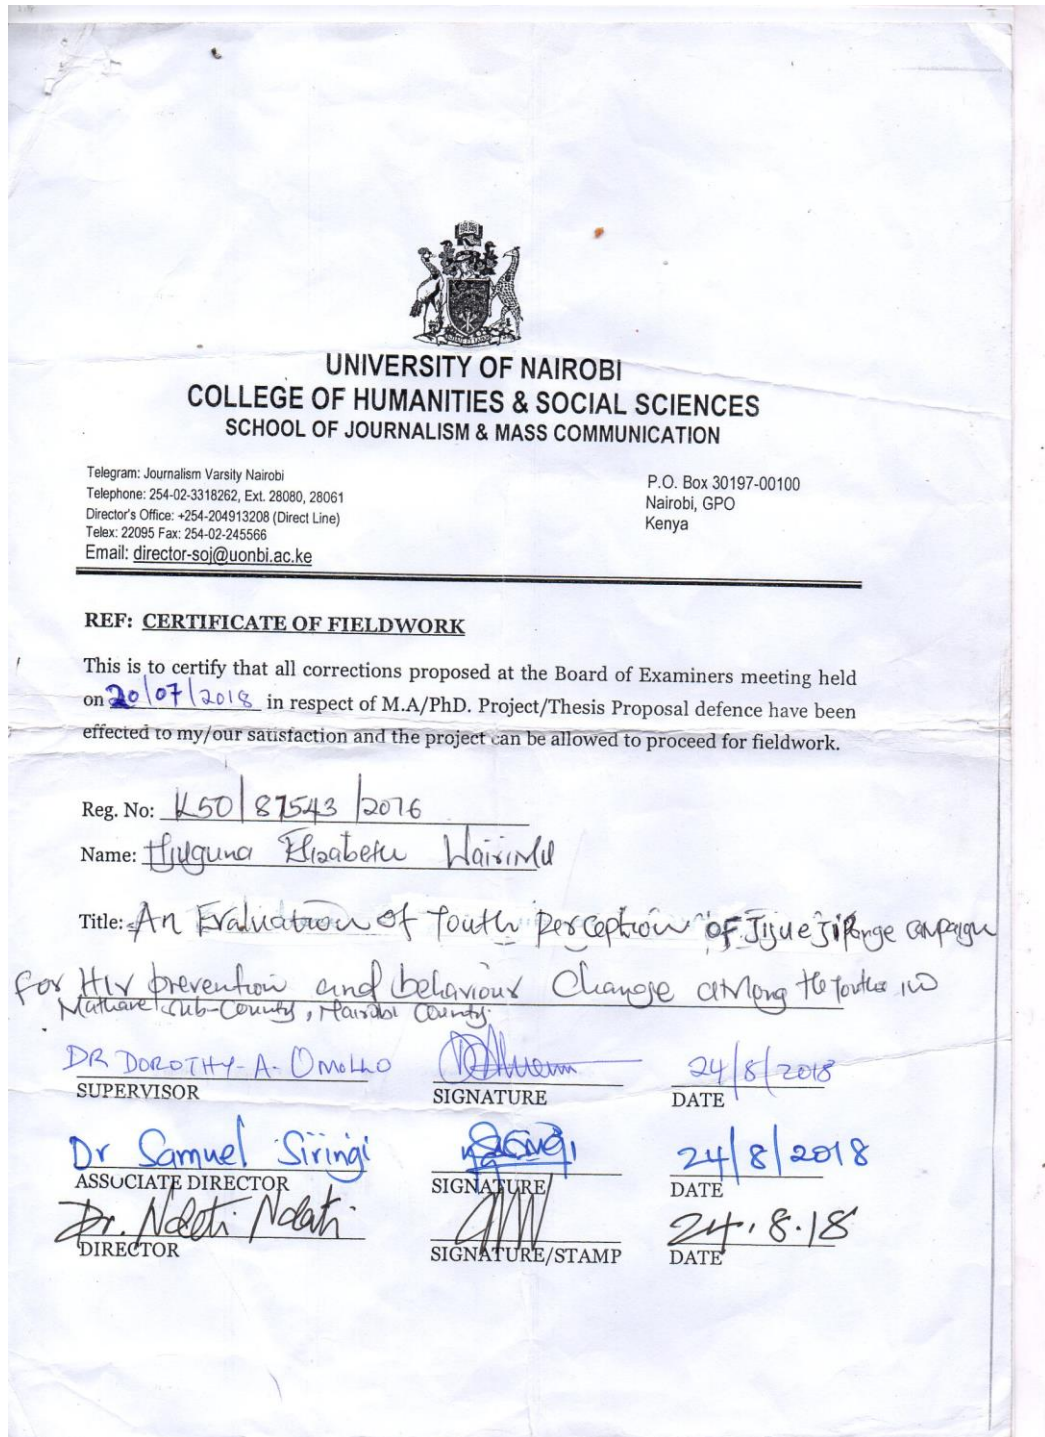 UNIVERSITY OF NAIROBI
COLLEGE OF HUMANITIES & SOCIAL SCIENCES
SCHOOL OF JOURNALISM & MASS COMMUNICATION
Telegram: Journalism Varsity Nairobi
Telephone: 254-02-3318262, Ext. 28080, 28061
Director's Office: +254-204913208 (Direct Line)
Telex: 22095 Fax: 254-02-245566
Email: director-soj@uonbi.ac.ke
P.O. Box 30197-00100
Nairobi, GPO
Kenya
REF: CERTIFICATE OF FIELDWORK
This is to certify that all corrections proposed at the Board of Examiners meeting held
on 20/07/2018 in respect of M.A/PhD. Project/Thesis Proposal defence have been
effected to my/our satisfaction and the project can be allowed to proceed for fieldwork.
Reg. No: K50/87543/2016
Name: Njuguna Elizabeth Wairimu
Title: An Evaluation of Youth perception of Jijue Jipange campaign
for HIV prevention and behaviour Change among the Youths in
Mathare Sub-County, Nairobi County.
DR DOROTHY-A- OMOLLO 24/8/2018
SUPERVISOR SIGNATURE DATE
Dr Samuel Siringi 24/8/2018
ASSOCIATE DIRECTOR SIGNATURE DATE
Dr. Ndeti Ndati 24.8.18
DIRECTOR SIGNATURE/STAMP DATE